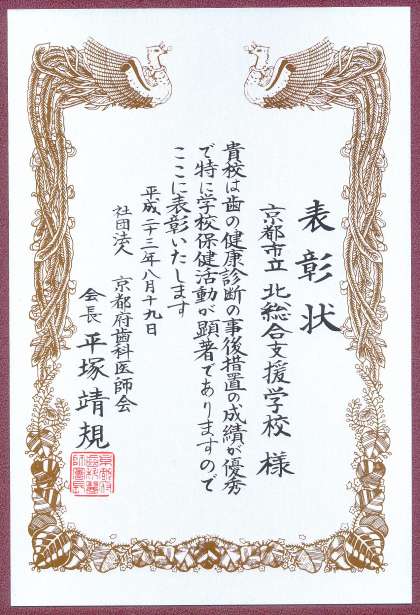 表彰状
京都市立 北総合支援学校 様
貴校は歯の健康診断の事後措置の成績が優秀
で特に学校保健活動が顕著でありますので
ここに表彰いたします
平成二十三年八月十九日
社団法人 京都府歯科医師会
会長 平塚靖規